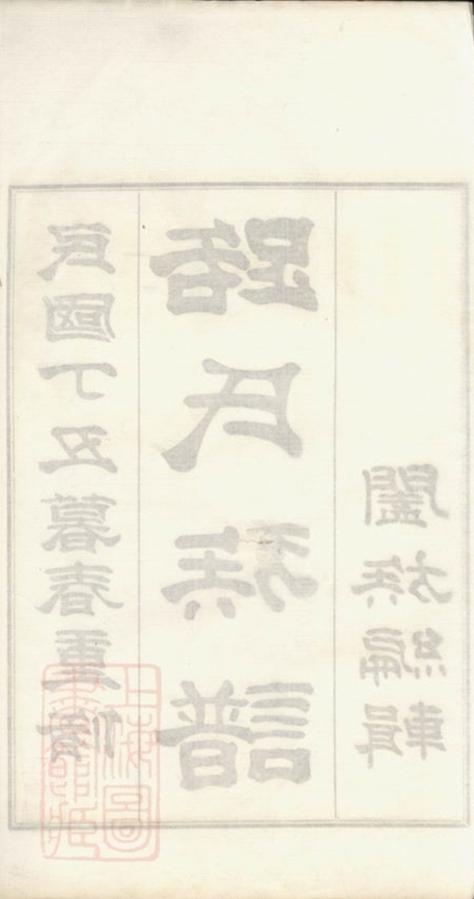 民國丁丑暮春重修
路氏族譜
闔族編輯
上海圖
書館藏